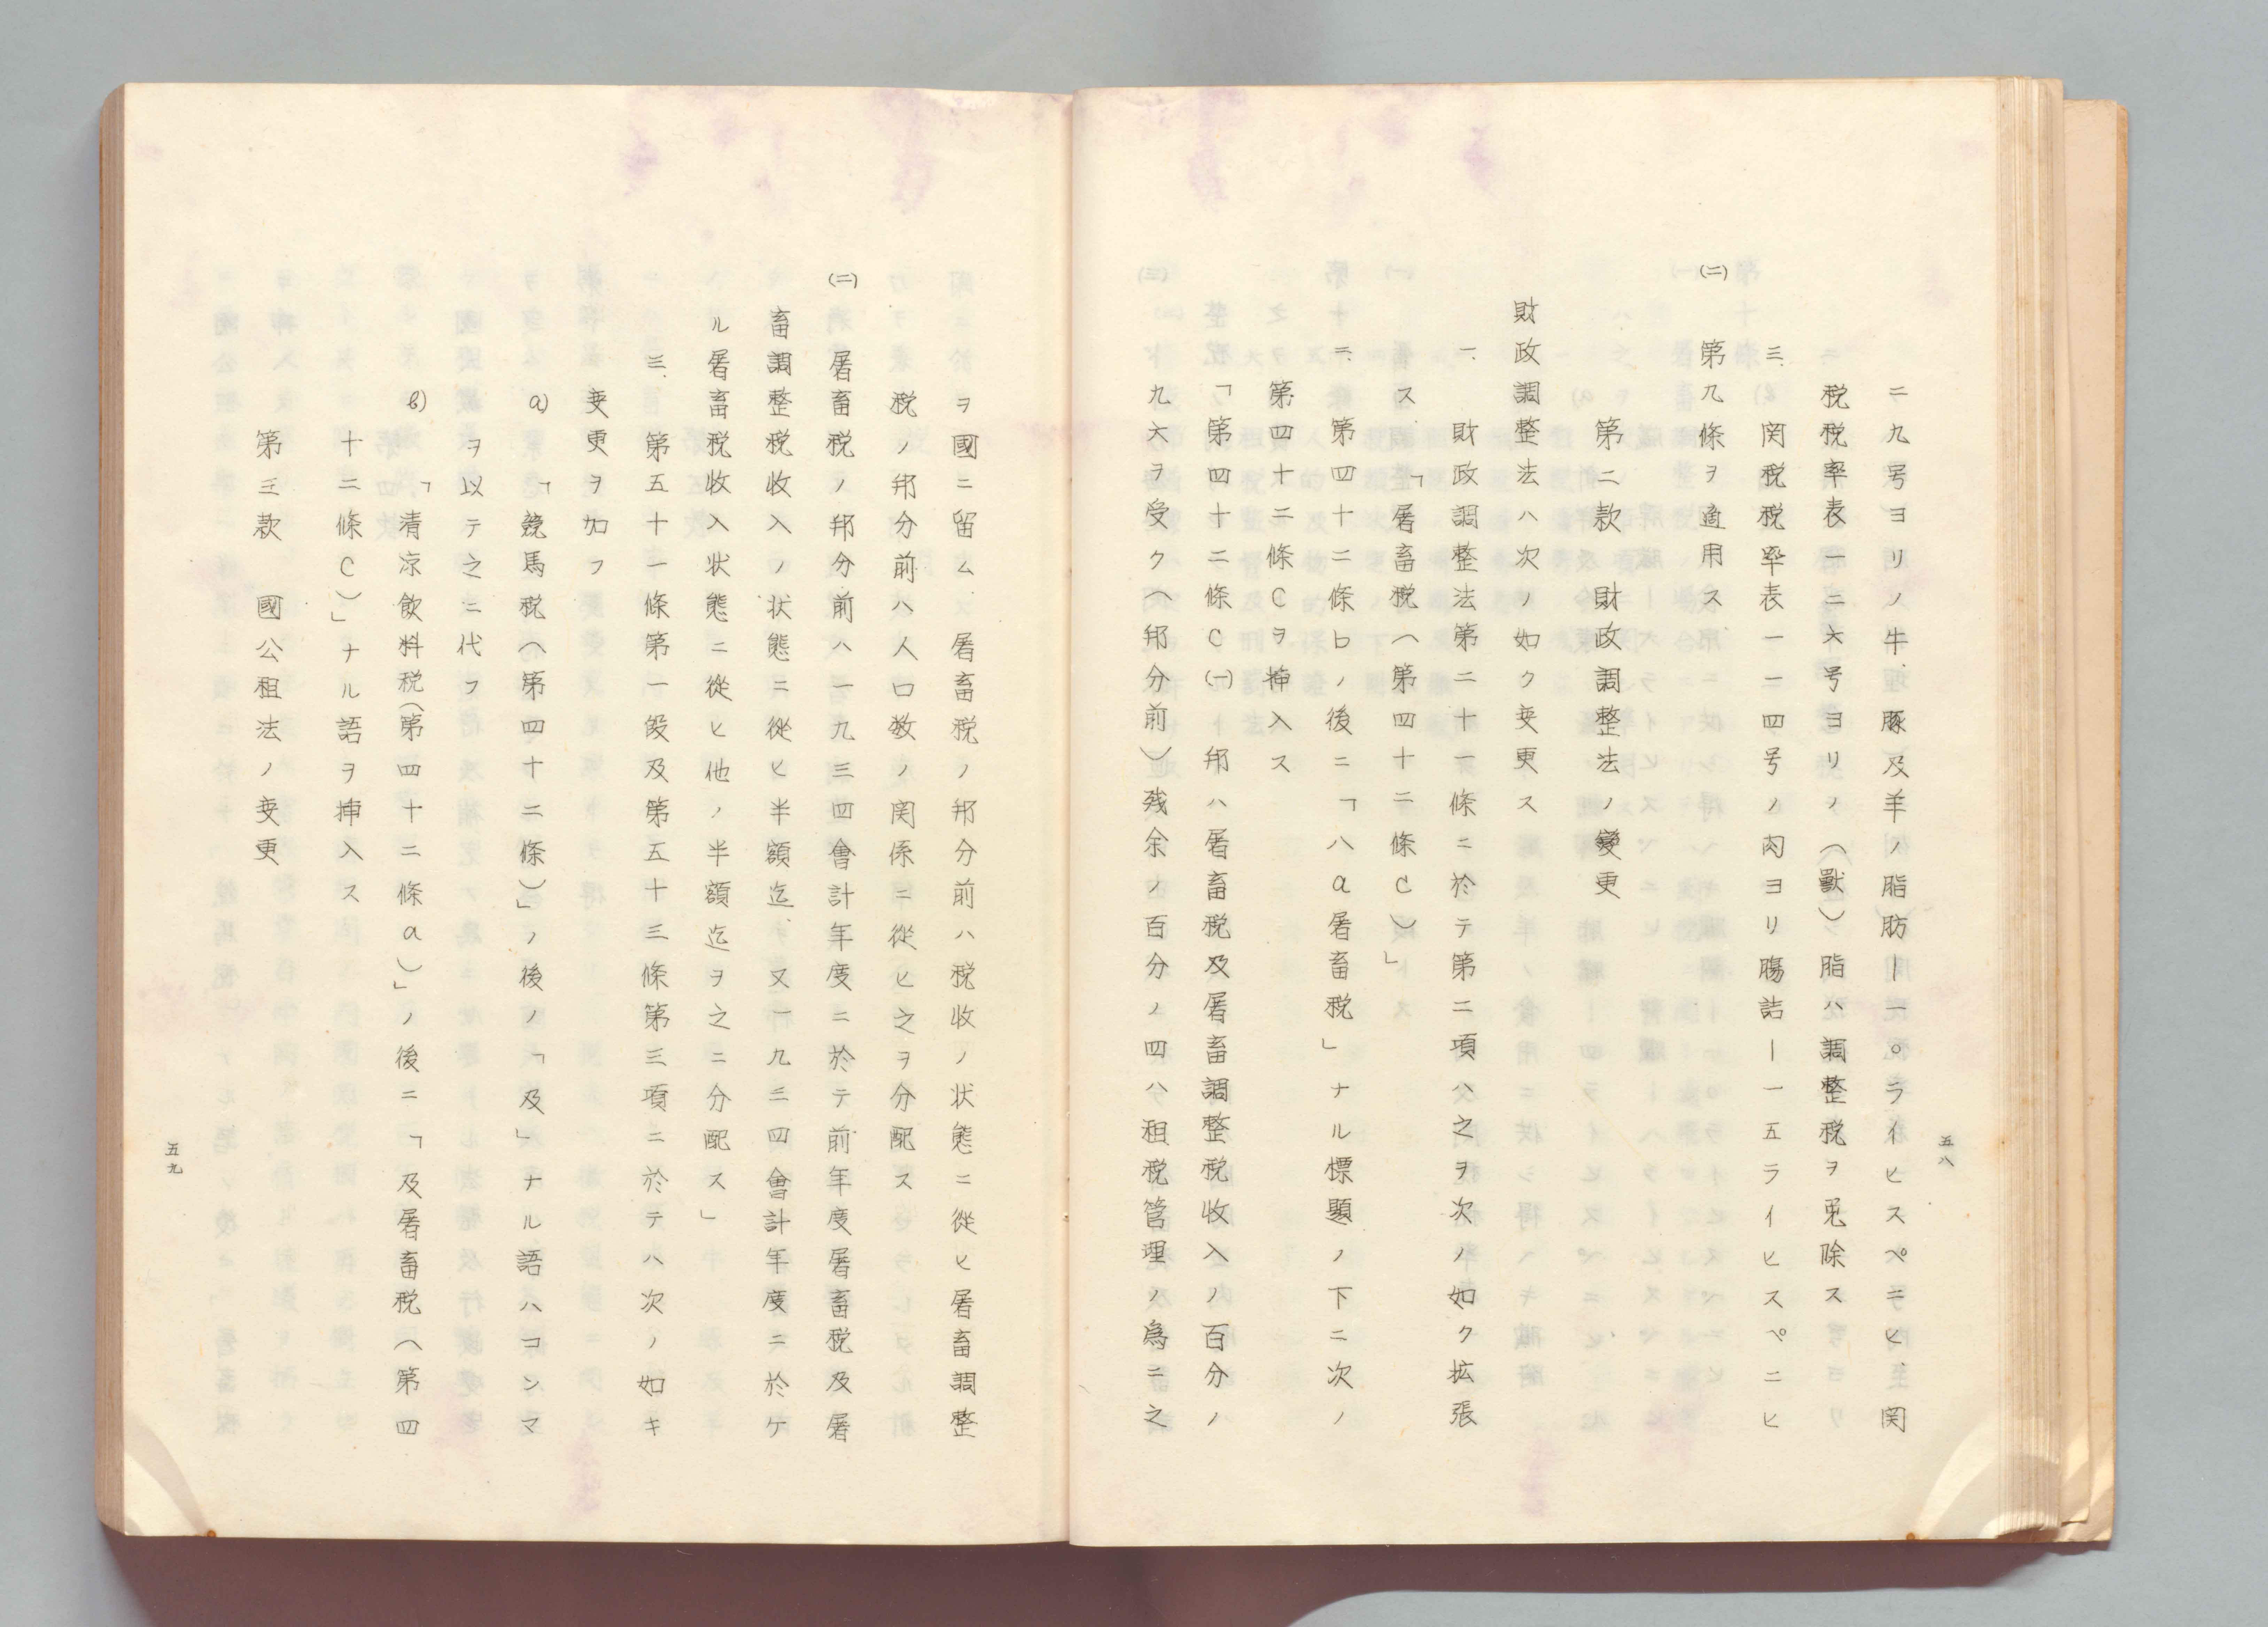 二九号ヨリノ牛、豚及羊ノ脂肪―一〇ライヒスペニヒ、関
税税率表一二六号ヨリノ（獸）脂ハ調整税ヲ免除ス
三、関税税率表一一四号ノ肉ヨリ腸詰―一五ライヒスペニヒ
(二)　第九條ヲ適用ス
第二款　財政調整法ノ變更
財政調整法ハ次ノ如ク変更ス
一、財政調整法第二十一條ニ於テ第二項ハ之ヲ次ノ如ク拡張
ス　「屠畜税（第四十二條C）」
二、第四十二條bノ後ニ「八a屠畜税」ナル標題ノ下ニ次ノ
第四十二條Cヲ挿入ス
「第四十二條C(一)　邦ハ屠畜税及屠畜調整税收入ノ百分ノ
九六ヲ受ク（邦分前）残余ノ百分ノ四ハ租税管理ノ爲ニ之
五八
ヲ國ニ留ム、屠畜税ノ邦分前ハ税收ノ状態ニ從ヒ屠畜調整
税ノ邦分前ハ人口数ノ関係ニ從ヒ之ヲ分配ス
(二)　屠畜税ノ邦分前ハ一九三四會計年度ニ於テ前年度屠畜税及屠
畜調整税收入ノ状態ニ從ヒ半額迄、又一九三四會計年度ニ於ケ
ル屠畜税收入状態ニ從ヒ他ノ半額迄ヲ之ニ分配ス」
三、第五十一條第一段及第五十三條第三項ニ於テハ次ノ如キ
変更ヲ加フ
a)　「競馬税（第四十二條）」ノ後ノ「及」ナル語ハコンマ
ヲ以テ之ニ代フ
b)　「清凉飲料税（第四十二條a）」ノ後ニ「及屠畜税（第四
十二條C）」ナル語ヲ挿入ス
第三款　國公租法ノ変更
五九